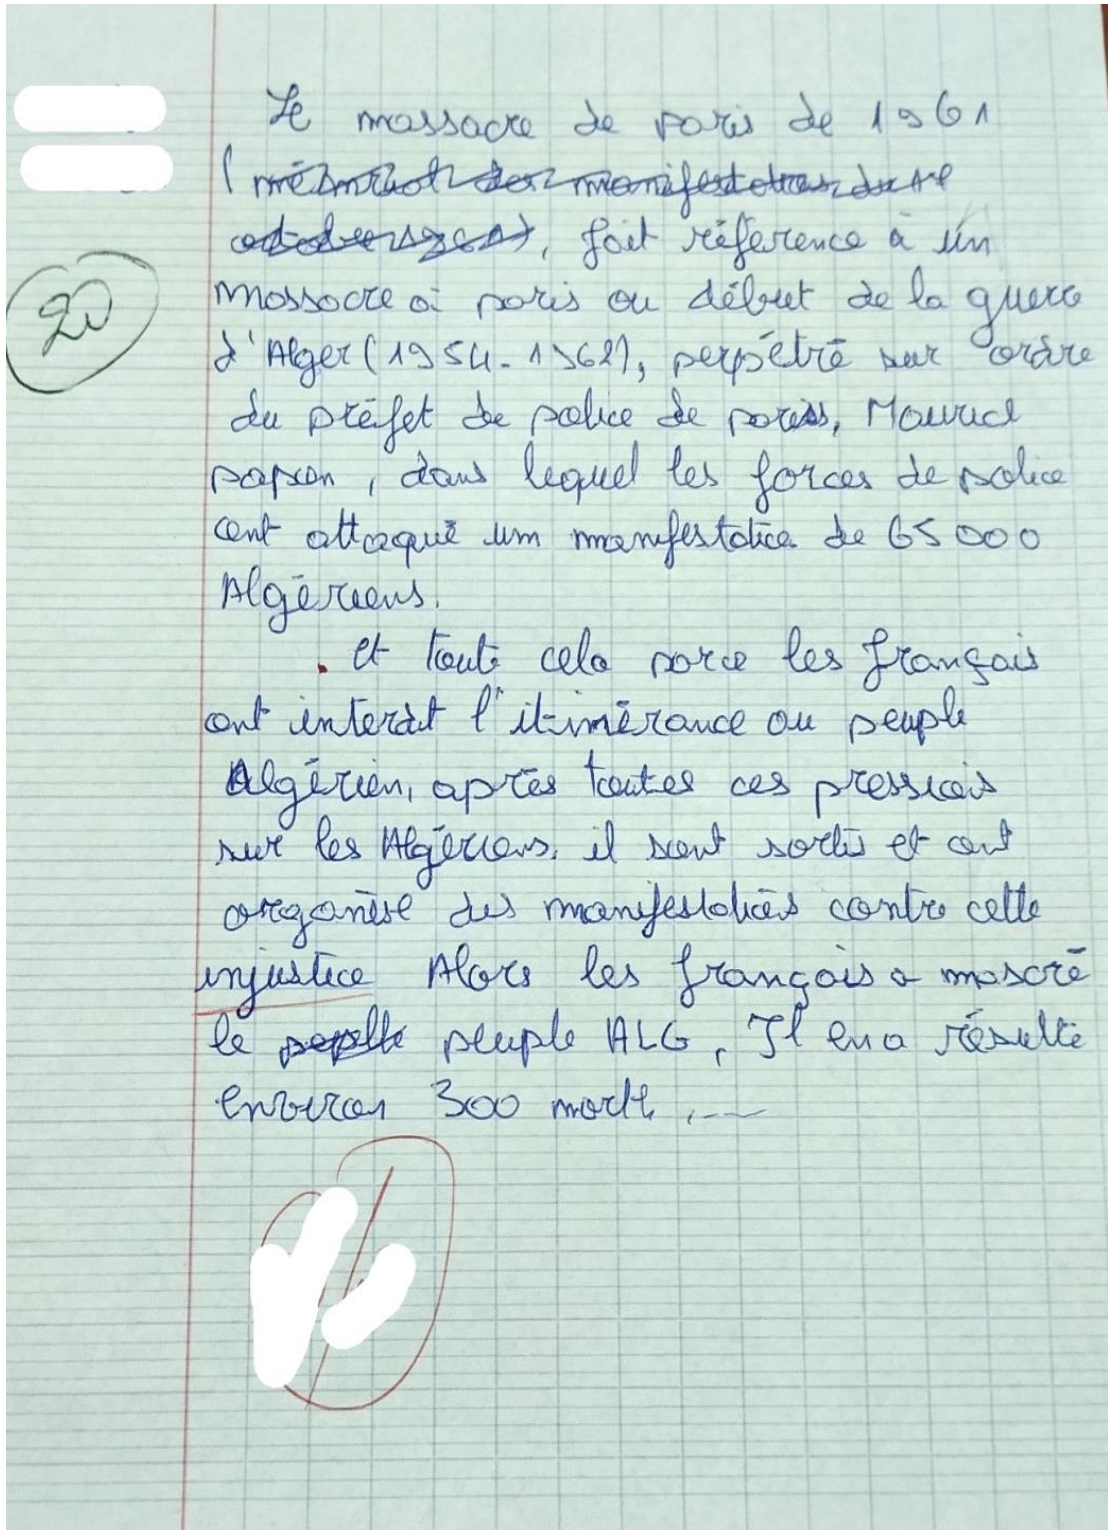 Le massacre de paris de 1961
( mémorial des manifestations du 17
octobre 1961), fait référence à un
massacre à paris au début de la guerre
20
d'Alger (1954-1962), perpétré sur ordre
du préfet de police de paris, Maurice
papon, dans lequel les forces de police
ont attaqué um manifestatica de 65000
Algériens.
. et toute cela parce les français
ont interdit l'itinérance au peuple
Algérien, après toutes ces pressiois
sur les Algériens, il sont sortis et ont
organise des manifestatiois contre cette
injustice Alors les français a mascré
le peuple ALG, Il en a résulté
environ 300 morts, .....